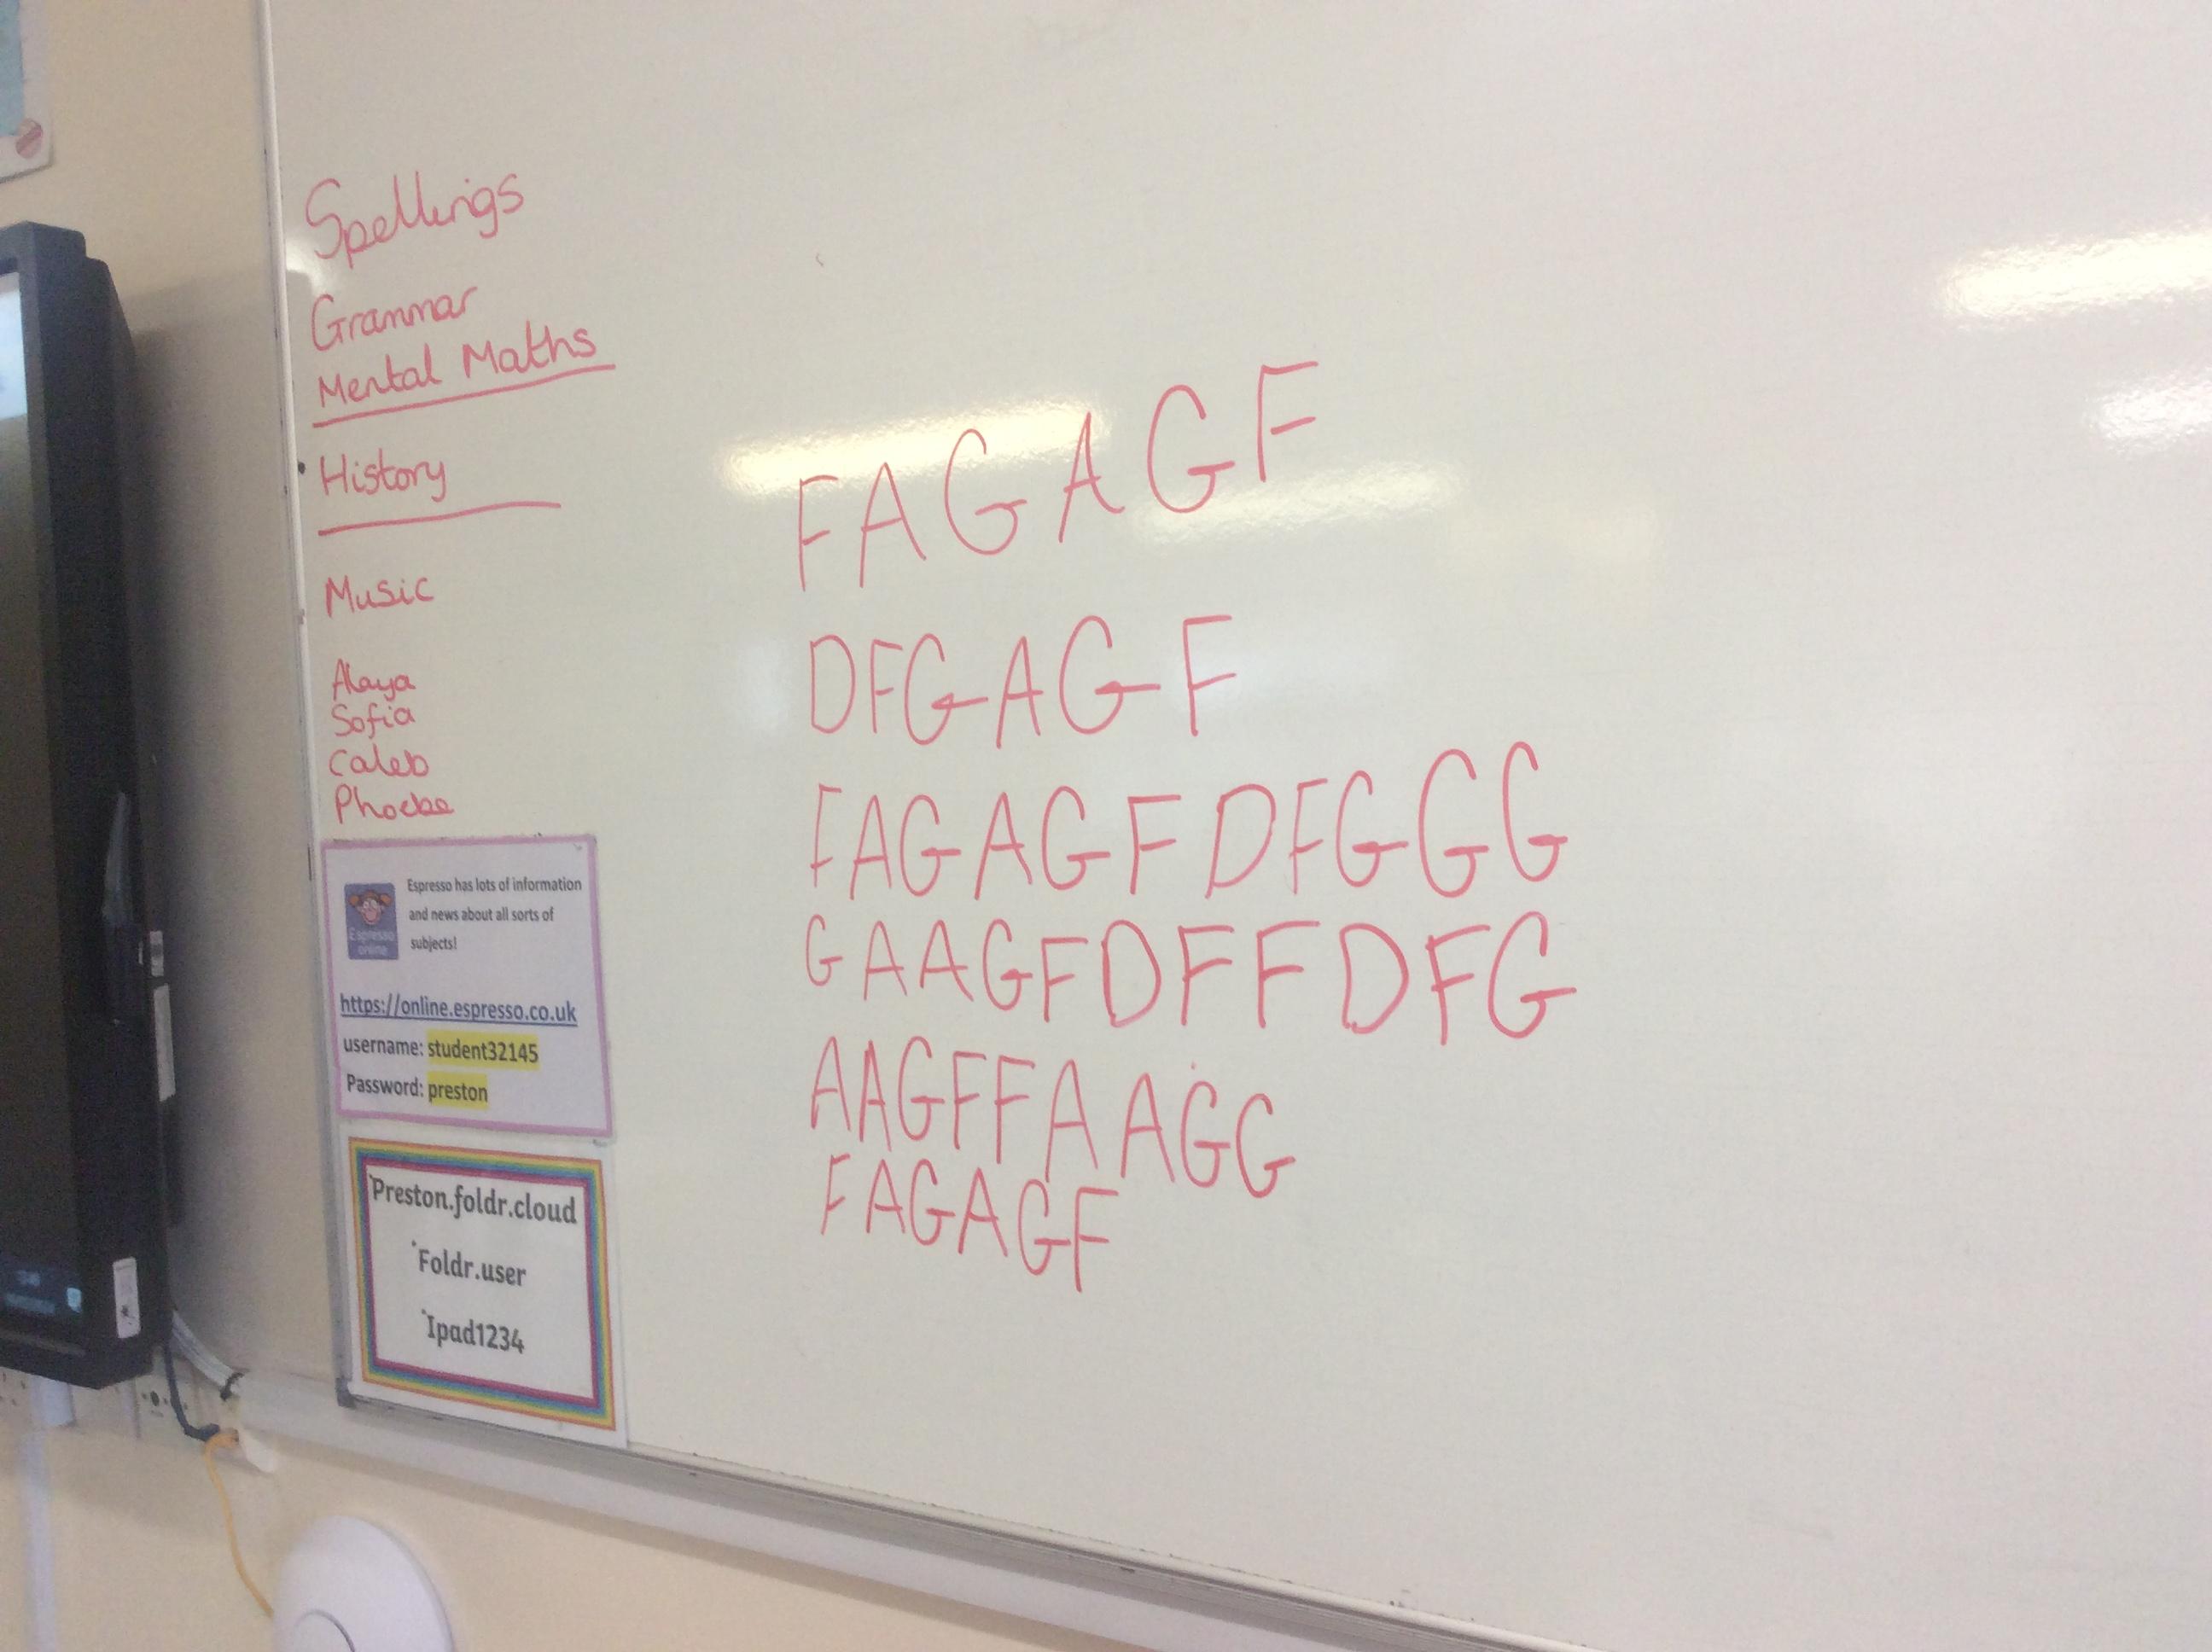 Spellings
Grammar
Mental Maths
History
Music
Alaya
Sofia
Caleb
Phoebe
Espresso has lots of information
and news about all sorts of
subjects!
Espresso
online
https://online.espresso.co.uk
username: student32145
Password: preston
Preston.foldr.cloud
Foldr.user
Ipad1234
F A G A G F
D F G A G F
F A G A G F D F G G G
G A A G F D F F D F G
A A G F F A A G G
F A G A G F